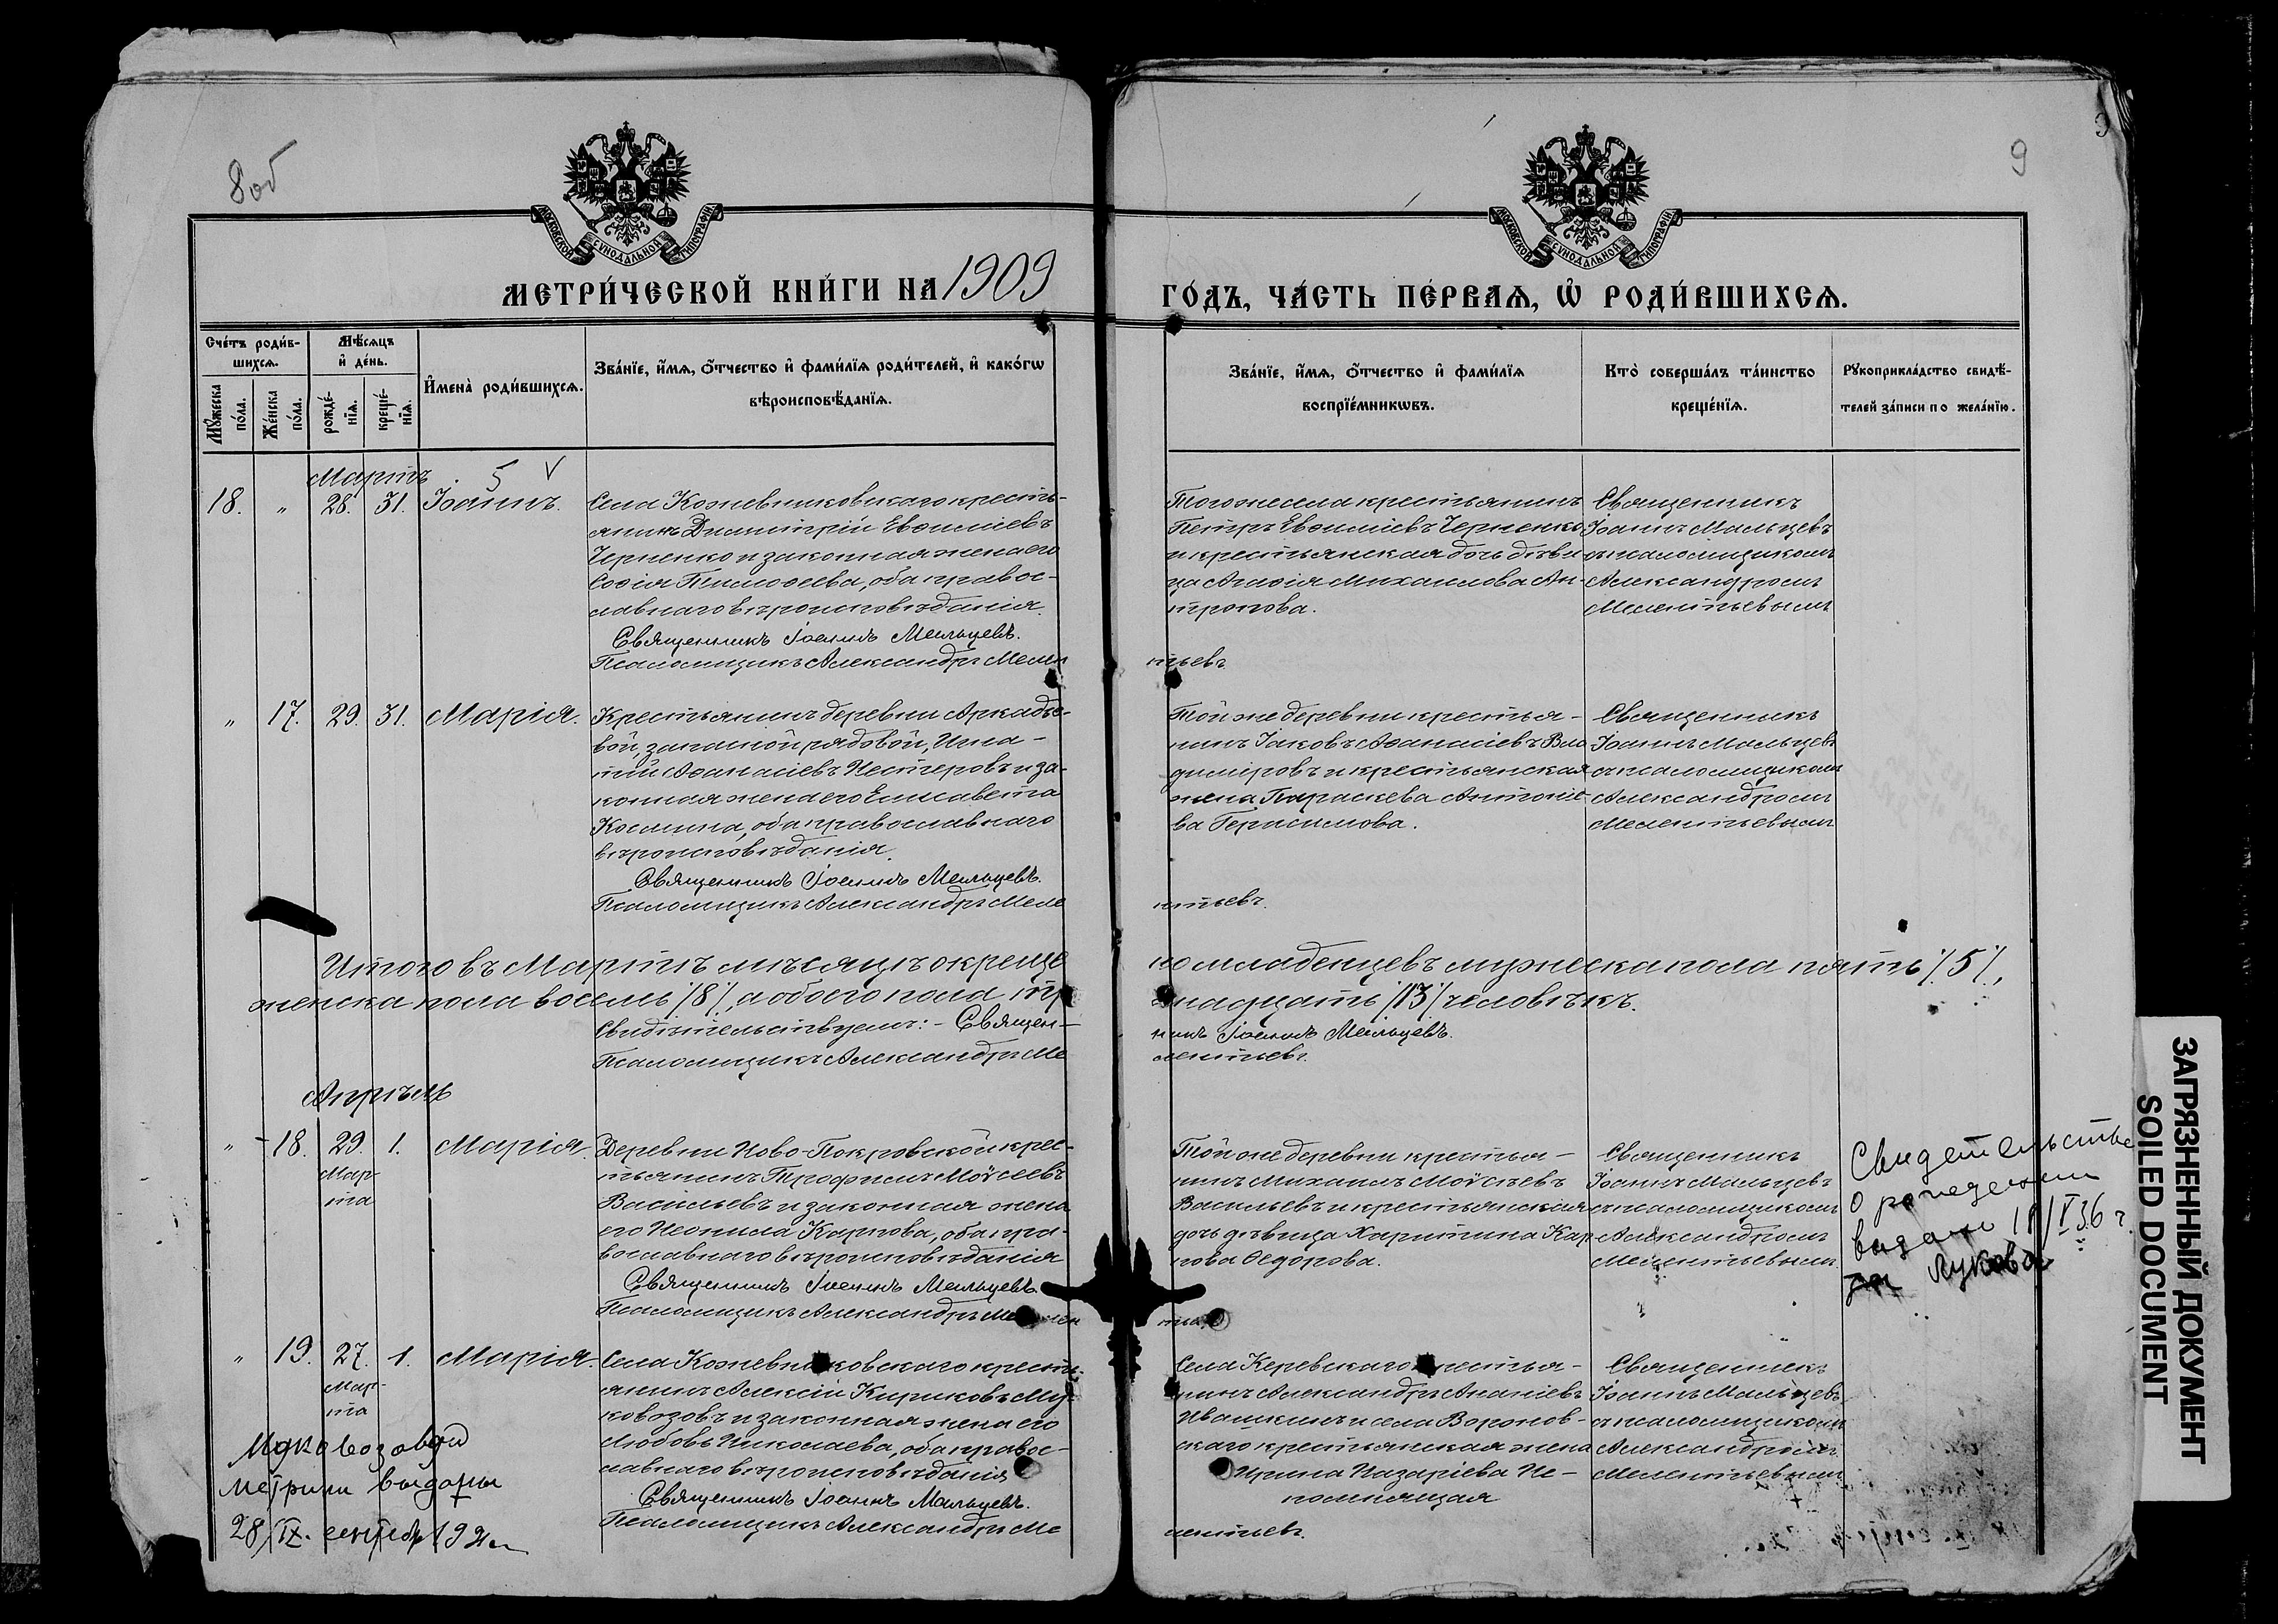 8 об
9
МОСКОВСКОЙ СѴНОДАЛЬНОЙ ТИПОГРАФІИ
МОСКОВСКОЙ СѴНОДАЛЬНОЙ ТИПОГРАФІИ
МЕТРИ́ЧЕСКОЙ КНИ́ГИ НА 1909
ГО́ДЪ, ЧА́СТЬ ПЕ́РВАѦ, Ѡ҆ РОДИ́ВШИХСѦ.
Сче́тъ роди́в-
шихсѧ.
Мꙋ́жеска
по́ла.
Же́нска
по́ла.
Мѣ́сѧцъ
и҆ де́нь.
рожде́-
нїѧ.
креще́-
нїѧ.
И҆мена̀ роди́вшихсѧ.
Зва́нїе, и҆́мѧ, ѻ҆́тчество и҆ фами́лїѧ роди́телей, и҆ како́гѡ
вѣроисповѣ́данїѧ.
Зва́нїе, и҆́мѧ, ѻ҆́тчество и҆ фами́лїѧ
воспрїе́мникѡвъ.
Кто̀ соверша́лъ та́инство
креще́нїѧ.
Рꙋкоприкла́дство свидѣ́-
телей за́писи по жела́нїю.
Мартъ
5 V
18. " 28. 31. Іоаннъ.
Села Кожевниковскаго кресть-
янинъ Димитрій Евѳиміевъ
Черненко и законная жена его
Софія Тимоѳеева, оба правос-
лавнаго вѣроисповѣданія.
Священникъ Іоаннъ Мальцевъ.
Псаломщикъ Александръ Мелен
тьевъ
Того же села крестьянинъ
Петръ Евѳиміевъ Черненко
и крестьянская дочь дѣви
ца Агафія Михаилова Ан-
тропова.
Священникъ
Іоаннъ Мальцевъ
съ псаломщикомъ
Александромъ
Мелентьевымъ
" 17. 29. 31. Марія.
Крестьянинъ деревни Аркадье-
вой, запасной рядовой, Игна-
тій Аѳанасіевъ Нестеровъ и за-
конная жена его Елисавета
Космина, оба православнаго
вѣроисповѣданія.
Священникъ Іоаннъ Мальцевъ.
Псаломщикъ Александръ Меле
нтьевъ.
Той же деревни крестья-
нинъ Іаковъ Аѳанасіевъ Вла
диміровъ и крестьянская
жена Параскева Антоніе
ва Герасимова.
Священникъ
Іоаннъ Мальцевъ
съ псаломщикомъ
Александромъ
Мелентьевымъ
Итого въ Мартѣ мѣсяцѣ окреще
но младенцевъ мужеска пола пять /5/,
женска пола восемь /8/, а обоего пола тр
надцать /13/ человѣкъ.
Свидѣтельствуемъ: - Священ-
никъ Іоаннъ Мальцевъ.
Псаломщикъ Александръ Ме
лентьевъ.
Апрѣль
" 18. 29. 1. Марія.
Мар-
та
Деревни Ново-Покровской крес-
тьянинъ Трофимъ Моѵсеевъ
Васильевъ и законная жена
его Неонила Карпова, оба пра-
вославнаго вѣроисповѣданія
Священникъ Іоаннъ Мальцевъ
Псаломщикъ Александръ
Той же деревни крестья-
нинъ Михаилъ Моѵсѣевъ
Васильевъ и крестьянская
дочь дѣвица Харитина Кар
пова Ѳедорова.
Священникъ
Іоаннъ Мальцевъ
съ псаломщикомъ
Александромъ
Мелентьевымъ.
Свидетельство
о рождении
выдано 18/V 36 г.
Лукова
" 19. 27. 1. Марія.
Мар-
та
Села Кожевниковскаго кресть-
янинъ Алексій Кириковъ Му-
ковозовъ и законная жена его
Любовь Николаева, оба правос-
лавнаго вѣроисповѣданія
Священникъ Іоаннъ Мальцевъ.
Псаломщикъ Александръ Ме
лентьевъ.
Села Керевскаго крестья-
нинъ Александръ Ананіевъ
Ивашкинъ и села Воронов-
скаго крестьянская жена
Ирина Назаріева Не-
помнящая
Священникъ
Іоаннъ Мальцевъ
съ псаломщикомъ
Александромъ
Мелентьевымъ
Муковозовой
метрики выданы
28/IX.
ЗАГРЯЗНЕННЫЙ ДОКУМЕНТ
SOILED DOCUMENT